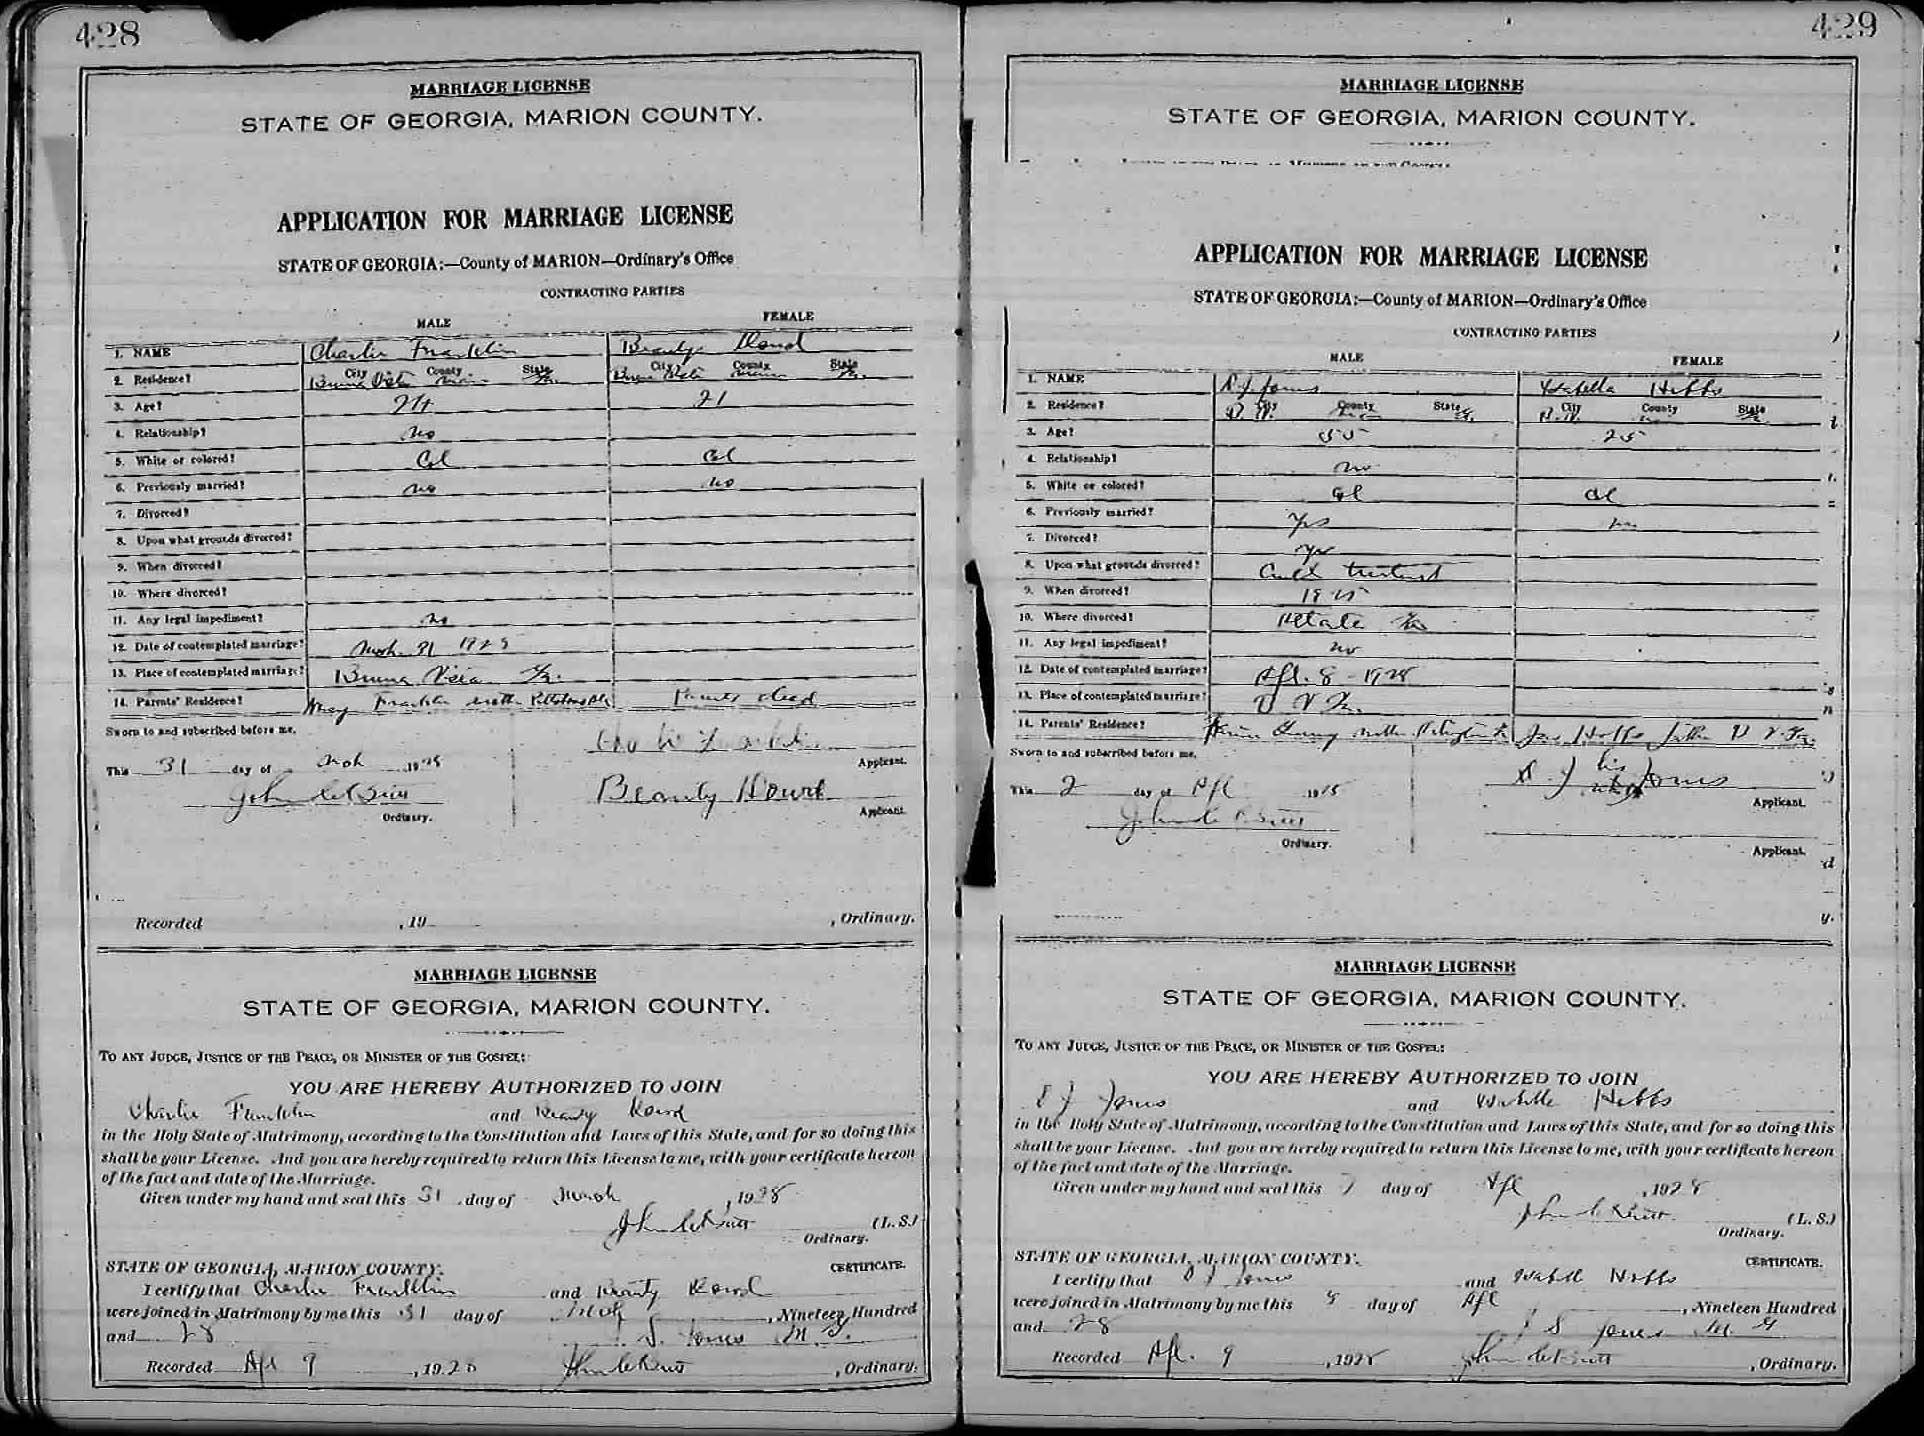 428
MARRIAGE LICENSE
STATE OF GEORGIA, MARION COUNTY.
APPLICATION FOR MARRIAGE LICENSE
STATE OF GEORGIA:—County of MARION—Ordinary's Office
CONTRACTING PARTIES
MALE FEMALE
1. NAME Charlie Franklin Beauty
2. Residence? City County State Buena Vista Marion Ga. City County State Buena Vista Marion Ga.
3. Age? 24 21
4. Relationship? no
5. White or colored? Col Col
6. Previously married? no no
7. Divorced?
8. Upon what grounds divorced?
9. When divorced?
10. Where divorced?
11. Any legal impediment? no
12. Date of contemplated marriage? Mch. 31 1928
13. Place of contemplated marriage? Buena Vista Ga.
14. Parents' Residence? Franklin mother Parents dead
Sworn to and subscribed before me, Charlie Franklin
Applicant.
This 31 day of Mch 1928
John C Butt Beauty
Ordinary. Applicant.
Recorded , 19 , Ordinary.
MARRIAGE LICENSE
STATE OF GEORGIA, MARION COUNTY.
TO ANY JUDGE, JUSTICE OF THE PEACE, OR MINISTER OF THE GOSPEL:
YOU ARE HEREBY AUTHORIZED TO JOIN
Charlie Franklin and Beauty
in the Holy State of Matrimony, according to the Constitution and Laws of this State, and for so doing this
shall be your License. And you are hereby required to return this License to me, with your certificate hereon
of the fact and date of the Marriage.
Given under my hand and seal this 31 day of March , 1928
John C Butt (L. S.)
Ordinary.
STATE OF GEORGIA, MARION COUNTY. CERTIFICATE.
I certify that Charlie Franklin and Beauty
were joined in Matrimony by me this 31 day of Mch , Nineteen Hundred
and 28 S. Jones M G.
Recorded Apl 9 , 1928 John C Butt , Ordinary.
429
MARRIAGE LICENSE
STATE OF GEORGIA, MARION COUNTY.
APPLICATION FOR MARRIAGE LICENSE
STATE OF GEORGIA:—County of MARION—Ordinary's Office
CONTRACTING PARTIES
MALE FEMALE
1. NAME J Jones Isabella Hobbs
2. Residence? City County State B. V. Ga. City County State B. V. Ga.
3. Age? 55 25
4. Relationship? no
5. White or colored? Col Col
6. Previously married? Yes no
7. Divorced? Yes
8. Upon what grounds divorced? Cruel treatment
9. When divorced?
10. Where divorced? Atlanta Ga
11. Any legal impediment? no
12. Date of contemplated marriage? Apl. 8 - 1928
13. Place of contemplated marriage? B V Ga.
14. Parents' Residence? mother Jas Hobbs father B V Ga.
Sworn to and subscribed before me, J his mark Jones
This 2 day of Apl 1928 Applicant.
John C Butt
Ordinary. Applicant.
MARRIAGE LICENSE
STATE OF GEORGIA, MARION COUNTY.
TO ANY JUDGE, JUSTICE OF THE PEACE, OR MINISTER OF THE GOSPEL:
YOU ARE HEREBY AUTHORIZED TO JOIN
J Jones and Isabella Hobbs
in the Holy State of Matrimony, according to the Constitution and Laws of this State, and for so doing this
shall be your License. And you are hereby required to return this License to me, with your certificate hereon
of the fact and date of the Marriage.
Given under my hand and seal this day of Apl , 1928
John C Butt (L. S.)
Ordinary.
STATE OF GEORGIA, MARION COUNTY. CERTIFICATE.
I certify that J Jones and Isabell Hobbs
were joined in Matrimony by me this 8 day of Apl , Nineteen Hundred
and 28 S Jones M G
Recorded Apl. 9 , 1928 John C Butt , Ordinary.